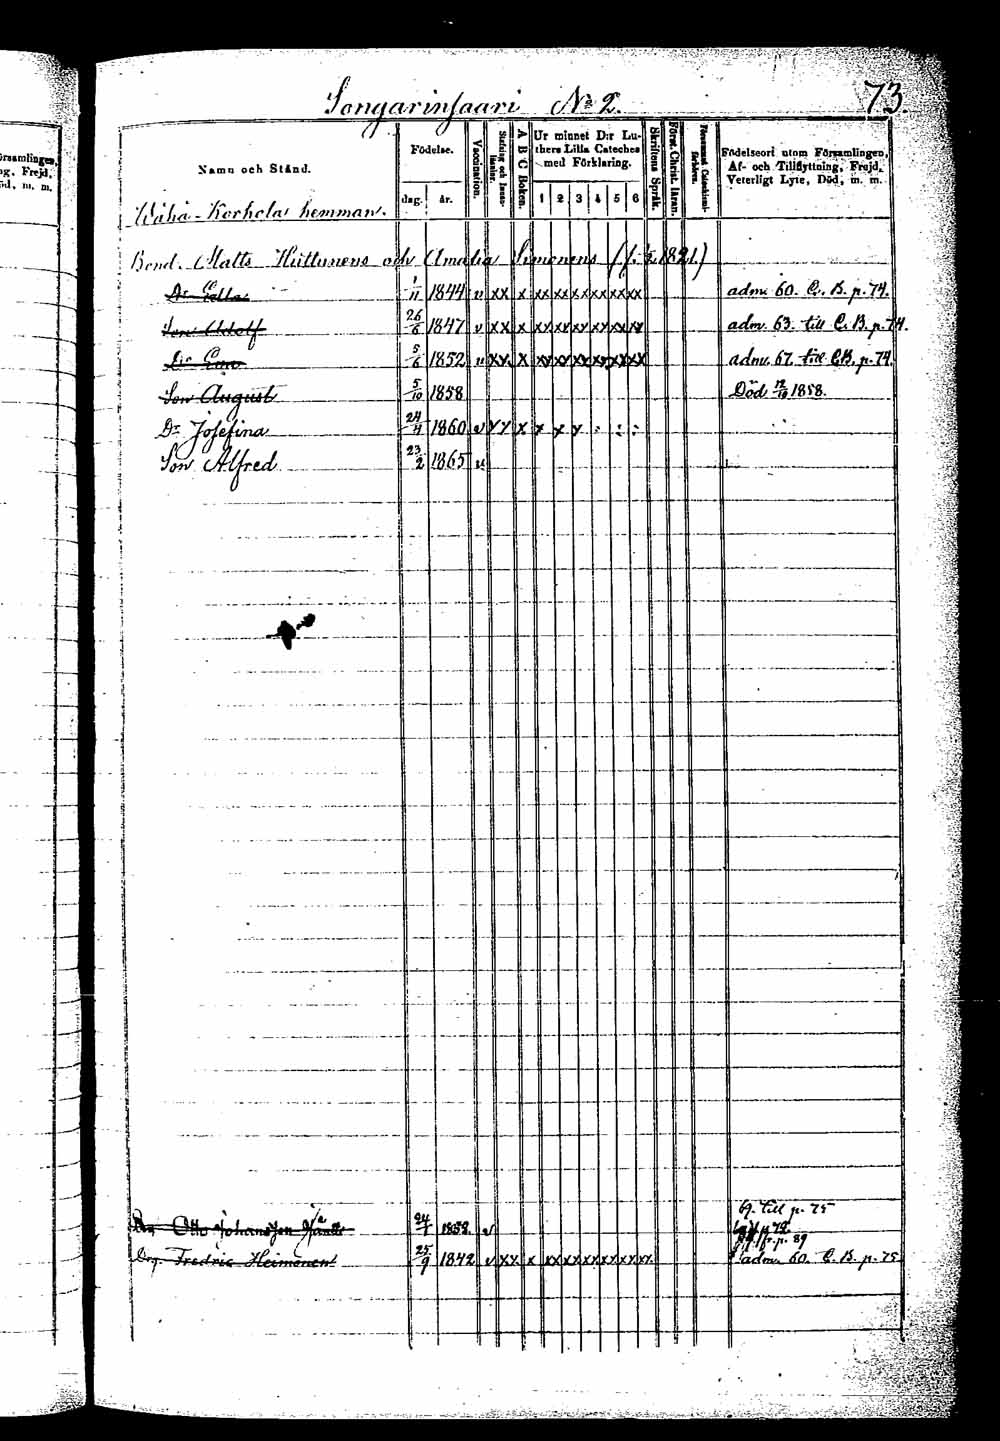 Songarinsaari № 2.
73.
Församlingen,
ng, Frejd,
öd, m. m.
Namn och Stånd.
Födelse.
dag.
år.
Vaccination.
Stafning och Innanläsning.
A B C Boken.
Ur minnet D:r Luthers Lilla Cateches med Förklaring.
1 2 3 4 5 6
Skriftens Språk.
Först. Christ. läran.
Försummat Catechismiförhören.
Födelseort utom Församlingen,
Af- och Tillflyttning, Frejd,
Veterligt Lyte, Död, m. m.
Wähä-Korhola hemman.
Bond. Matts Huttunens och Amalia Simonens (f. 1821.)
Dr Ella 1/11 1844 v xx x xx xx xx xx xx xx adm. 60. C. B. p. 74.
Son Adolf 26/6 1847 v xx x xx xx xx xx xx xx adm. 63. till C. B. p. 74.
Dr Eva 5/6 1852 v xx x xx xx xx xx xx xx adm. 67. till C.B. p. 74.
Son August 5/10 1858 Död 12/10 1858.
Dr Josefina 24/4 1860 v x x x x x x : : :
Son Alfred 23/2 1865 v
67. till p. 75
Otto Johansson 24/1 1858. v
fr. p. 89
Drg. Fredric Heimonen 25/9 1842 v xx x xx xx xx xx xx xx adm. 60. C. B. p. 75